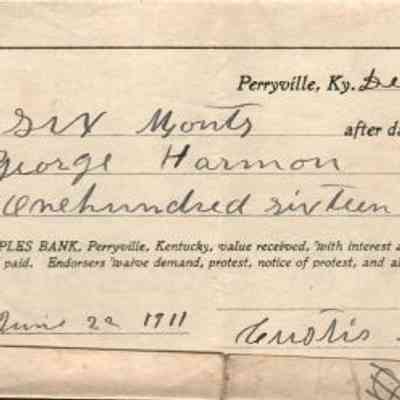 Perryville, Ky. De
Six Monts after da
George Harmon
Onehundred sixteen
PLES BANK, Perryville, Kentucky, value received, with interest a
paid. Endorsers waive demand, protest, notice of protest, and al
June 22 1911
Custis